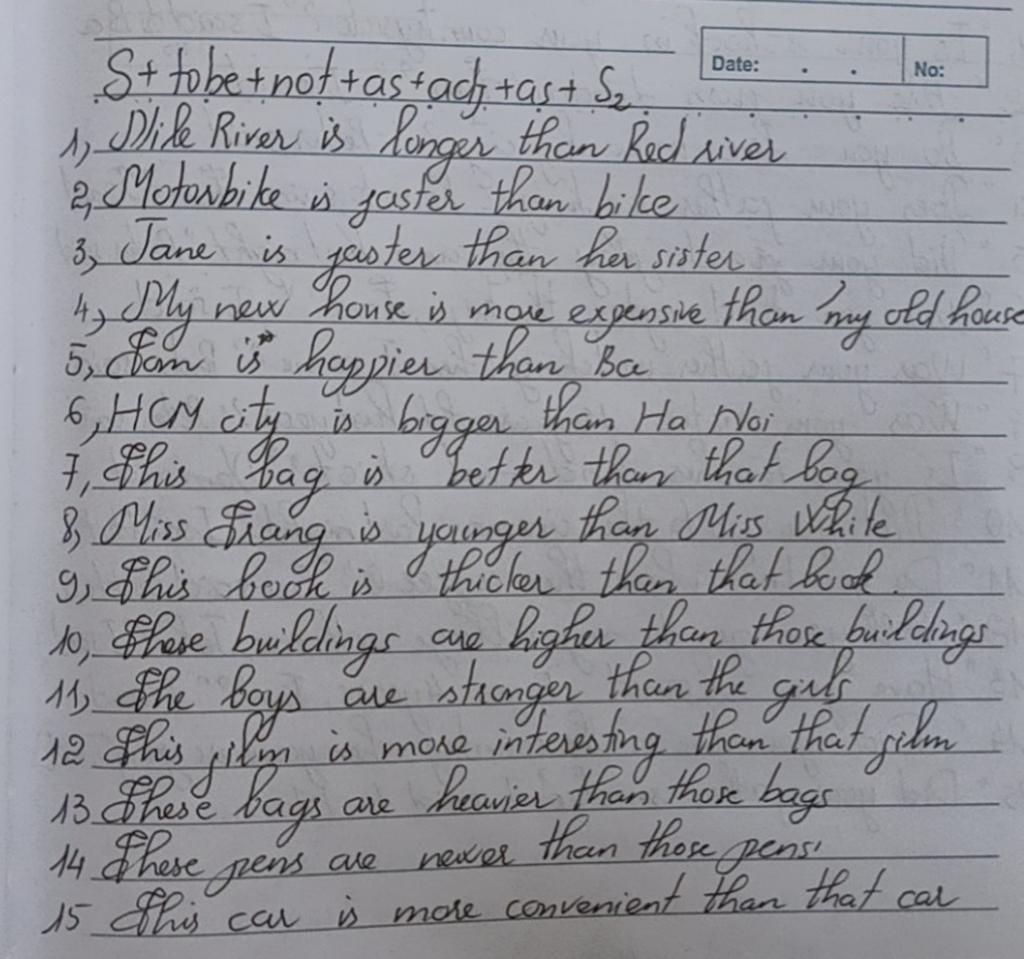 Date: . . No:
S + tobe + not + as + adj + as + S2
1, Nile River is longer than Red river
2, Motorbike is faster than bike
3, Jane is faster than her sister
4, My new house is more expensive than my old house
5, Tom is happier than Ba
6, HCM city is bigger than Ha Noi
7, This bag is better than that bag
8, Miss Trang is younger than Miss White
9, This book is thicker than that book.
10, These buildings are higher than those buildings
11, The boys are stronger than the girls
12 This film is more interesting than that film
13 These bags are heavier than those bags
14 These pens are newer than those pens
15 This car is more convenient than that car